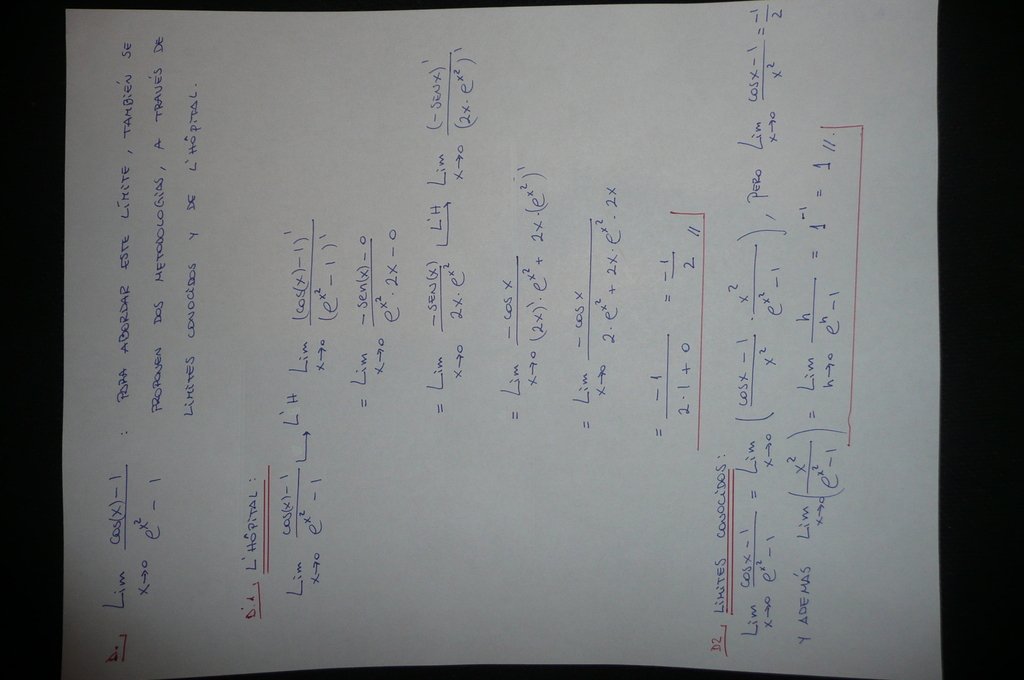 D. Lim x→0 (cos(x)-1)/(e^(x^2) - 1) : PARA ABORDAR ESTE LÍMITE, TAMBIÉN SE
PROPONEN DOS METODOLOGÍAS, A TRAVÉS DE
LÍMITES CONOCIDOS Y DE L'HÔPITAL.
D.1. L'HÔPITAL:
Lim x→0 (cos(x)-1)/(e^(x^2) - 1) → L'H Lim x→0 (cos(x)-1)'/(e^(x^2) - 1)'
= Lim x→0 (-sen(x)-0)/(e^(x^2) · 2x - 0)
= Lim x→0 (-SEN(x))/(2x · e^(x^2)) → L'H Lim x→0 (-SENX)'/(2x · e^(x^2))'
= Lim x→0 (-cos x)/((2x)' · e^(x^2) + 2x · (e^(x^2))')
= Lim x→0 (-cos x)/(2 · e^(x^2) + 2x · e^(x^2) · 2x)
= (-1)/(2·1+0) = -1/2 //
D2. LÍMITES CONOCIDOS:
Lim x→0 (cosx-1)/(e^(x^2)-1) = Lim x→0 ((cosx-1)/x^2 · x^2/(e^(x^2)-1)), PERO Lim x→0 (cosx-1)/x^2 = -1/2
Y ADEMÁS Lim x→0 (x^2/(e^(x^2)-1)) = Lim h→0 h/(e^h-1) = 1^(-1) = 1 //.